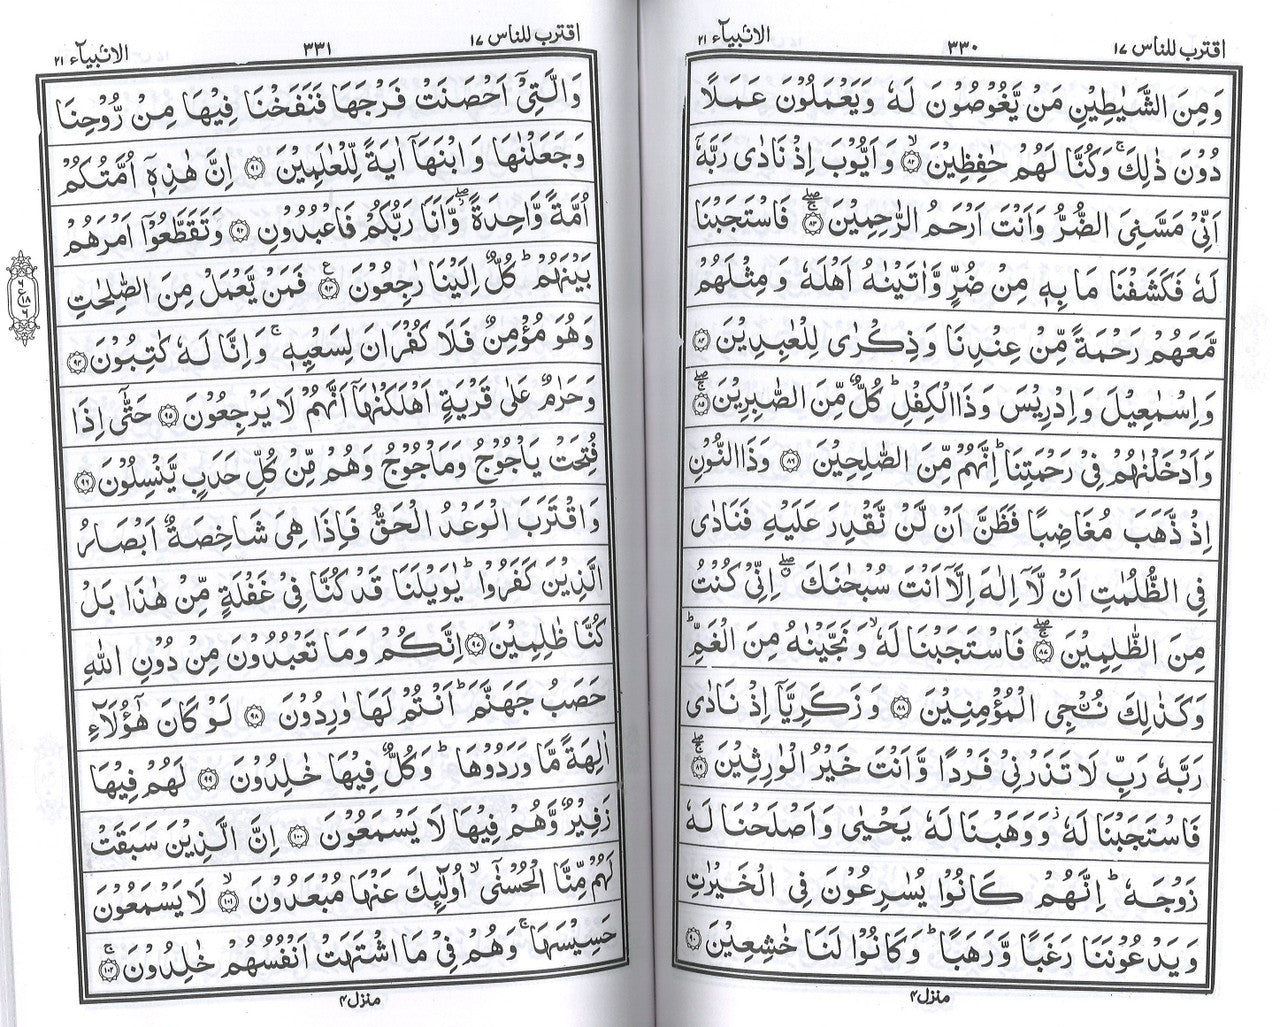 اقترب للناس ١٧ ٣٣٠ الانبياء ٢١
وَمِنَ الشَّيٰطِيْنِ مَنْ يَّغُوْصُوْنَ لَهٗ وَيَعْمَلُوْنَ عَمَلًا
دُوْنَ ذٰلِكَ ۚ وَكُنَّا لَهُمْ حٰفِظِيْنَ ۙ﴿٨٢﴾ وَاَيُّوْبَ اِذْ نَادٰى رَبَّهٗٓ
اَنِّيْ مَسَّنِيَ الضُّرُّ وَاَنْتَ اَرْحَمُ الرّٰحِمِيْنَ ۚۖ﴿٨٣﴾ فَاسْتَجَبْنَا
لَهٗ فَكَشَفْنَا مَا بِهٖ مِنْ ضُرٍّ وَّاٰتَيْنٰهُ اَهْلَهٗ وَمِثْلَهُمْ
مَّعَهُمْ رَحْمَةً مِّنْ عِنْدِنَا وَذِكْرٰى لِلْعٰبِدِيْنَ ﴿٨٤﴾
وَاِسْمٰعِيْلَ وَاِدْرِيْسَ وَذَا الْكِفْلِ ؕ كُلٌّ مِّنَ الصّٰبِرِيْنَ ۚۖ﴿٨٥﴾
وَاَدْخَلْنٰهُمْ فِيْ رَحْمَتِنَا ؕ اِنَّهُمْ مِّنَ الصّٰلِحِيْنَ ﴿٨٦﴾ وَذَا النُّوْنِ
اِذْ ذَّهَبَ مُغَاضِبًا فَظَنَّ اَنْ لَّنْ نَّقْدِرَ عَلَيْهِ فَنَادٰى
فِي الظُّلُمٰتِ اَنْ لَّآ اِلٰهَ اِلَّآ اَنْتَ سُبْحٰنَكَ ۖ اِنِّيْ كُنْتُ
مِنَ الظّٰلِمِيْنَ ۚۖ﴿٨٧﴾ فَاسْتَجَبْنَا لَهٗ ۙ وَنَجَّيْنٰهُ مِنَ الْغَمِّ ؕ
وَكَذٰلِكَ نُـنْجِي الْمُؤْمِنِيْنَ ﴿٨٨﴾ وَزَكَرِيَّآ اِذْ نَادٰى
رَبَّهٗ رَبِّ لَا تَذَرْنِيْ فَرْدًا وَّاَنْتَ خَيْرُ الْوٰرِثِيْنَ ۚۖ﴿٨٩﴾
فَاسْتَجَبْنَا لَهٗ ۫ وَوَهَبْنَا لَهٗ يَحْيٰى وَاَصْلَحْنَا لَهٗ
زَوْجَهٗ ؕ اِنَّهُمْ كَانُوْا يُسٰرِعُوْنَ فِي الْخَيْرٰتِ
وَيَدْعُوْنَنَا رَغَبًا وَّرَهَبًا ؕ وَكَانُوْا لَنَا خٰشِعِيْنَ ﴿٩٠﴾
منزل ٤
اقترب للناس ١٧ ٣٣١ الانبياء ٢١
وَالَّتِيْٓ اَحْصَنَتْ فَرْجَهَا فَنَفَخْنَا فِيْهَا مِنْ رُّوْحِنَا
وَجَعَلْنٰهَا وَابْنَهَآ اٰيَةً لِّلْعٰلَمِيْنَ ﴿٩١﴾ اِنَّ هٰذِهٖٓ اُمَّتُكُمْ
اُمَّةً وَّاحِدَةً ۖ وَّاَنَا رَبُّكُمْ فَاعْبُدُوْنِ ﴿٩٢﴾ وَتَقَطَّعُوْٓا اَمْرَهُمْ
بَيْنَهُمْ ؕ كُلٌّ اِلَيْنَا رٰجِعُوْنَ ﴿٩٣﴾ ع فَمَنْ يَّعْمَلْ مِنَ الصّٰلِحٰتِ
وَهُوَ مُؤْمِنٌ فَلَا كُفْرَانَ لِسَعْيِهٖ ۚ وَاِنَّا لَهٗ كٰتِبُوْنَ ﴿٩٤﴾
وَحَرٰمٌ عَلٰى قَرْيَةٍ اَهْلَكْنٰهَآ اَنَّهُمْ لَا يَرْجِعُوْنَ ﴿٩٥﴾ حَتّٰٓى اِذَا
فُتِحَتْ يَاْجُوْجُ وَمَاْجُوْجُ وَهُمْ مِّنْ كُلِّ حَدَبٍ يَّنْسِلُوْنَ ﴿٩٦﴾
وَاقْتَرَبَ الْوَعْدُ الْحَقُّ فَاِذَا هِيَ شَاخِصَةٌ اَبْصَارُ
الَّذِيْنَ كَفَرُوْا ؕ يٰوَيْلَنَا قَدْ كُنَّا فِيْ غَفْلَةٍ مِّنْ هٰذَا بَلْ
كُنَّا ظٰلِمِيْنَ ﴿٩٧﴾ اِنَّكُمْ وَمَا تَعْبُدُوْنَ مِنْ دُوْنِ اللّٰهِ
حَصَبُ جَهَنَّمَ ؕ اَنْتُمْ لَهَا وٰرِدُوْنَ ﴿٩٨﴾ لَوْ كَانَ هٰٓؤُلَآءِ
اٰلِهَةً مَّا وَرَدُوْهَا ؕ وَكُلٌّ فِيْهَا خٰلِدُوْنَ ﴿٩٩﴾ لَهُمْ فِيْهَا
زَفِيْرٌ وَّهُمْ فِيْهَا لَا يَسْمَعُوْنَ ﴿١٠٠﴾ اِنَّ الَّذِيْنَ سَبَقَتْ
لَهُمْ مِّنَّا الْحُسْنٰٓى ۙ اُولٰٓئِكَ عَنْهَا مُبْعَدُوْنَ ۙ﴿١٠١﴾ لَا يَسْمَعُوْنَ
حَسِيْسَهَا ۚ وَهُمْ فِيْ مَا اشْتَهَتْ اَنْفُسُهُمْ خٰلِدُوْنَ ۚ﴿١٠٢﴾
منزل ٤